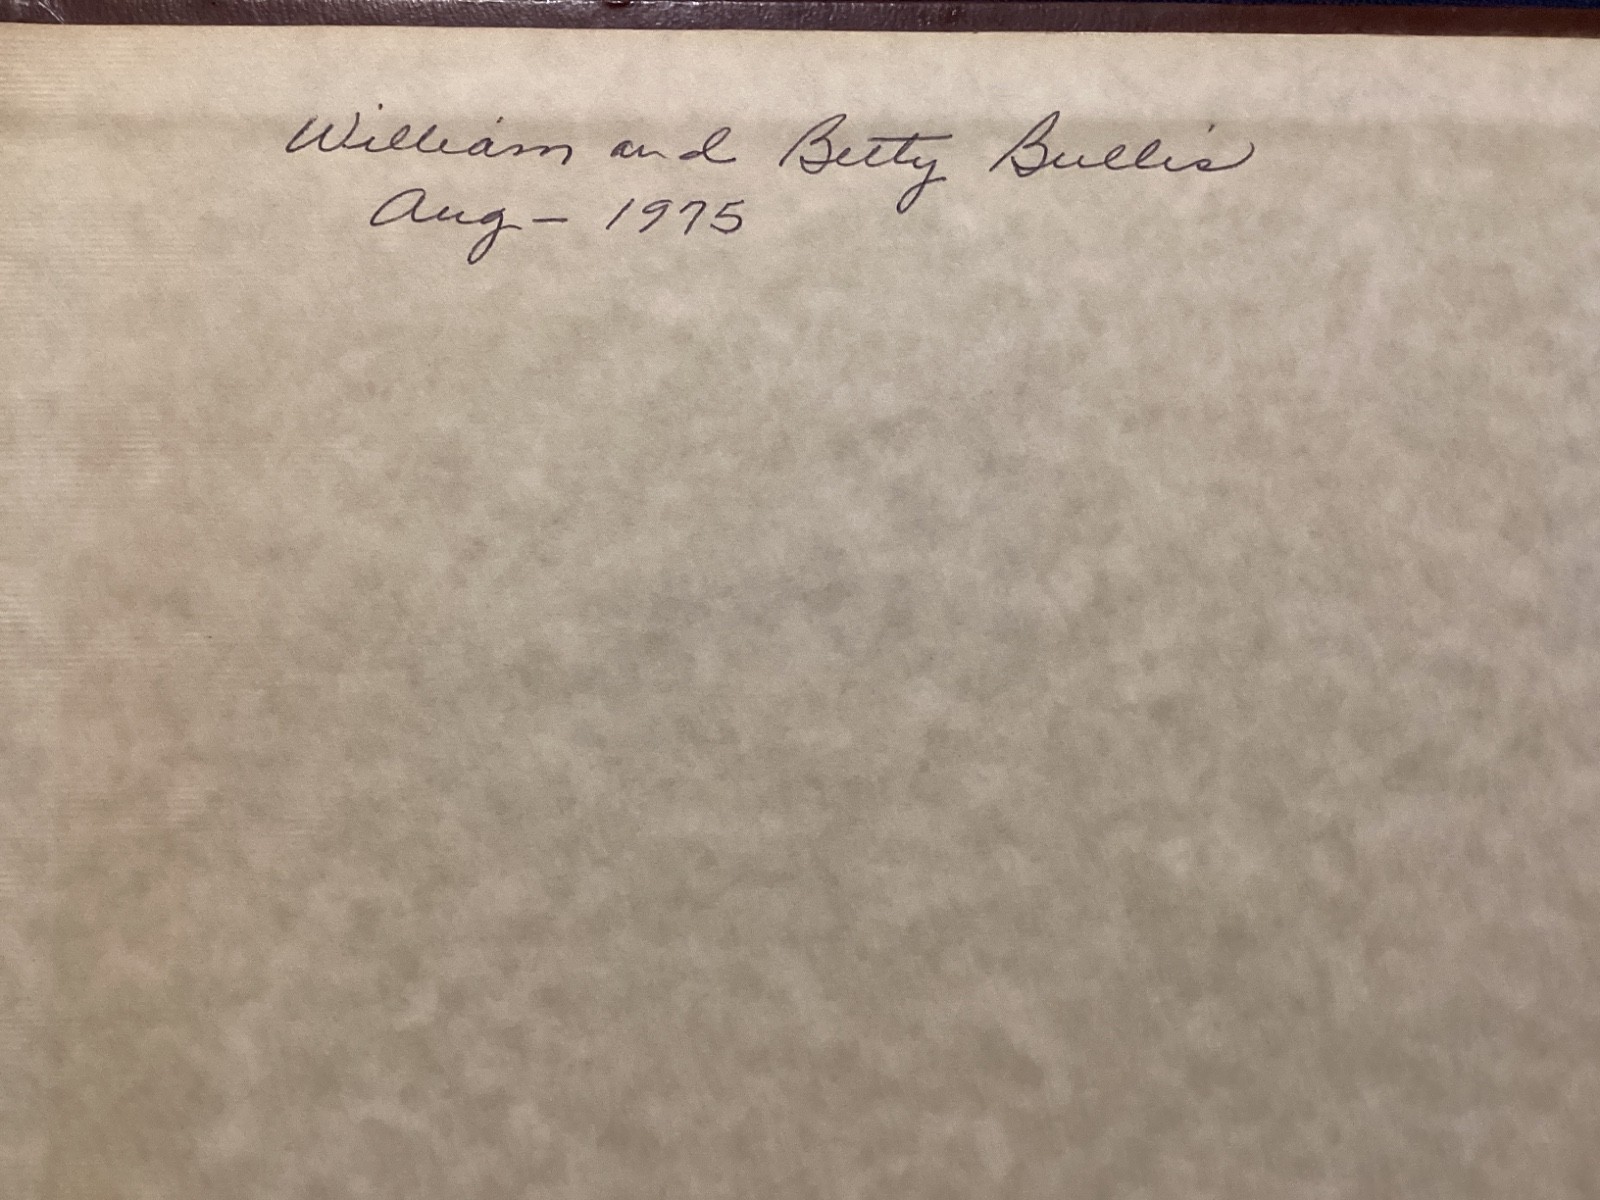 William and Betty Bullis
Aug – 1975